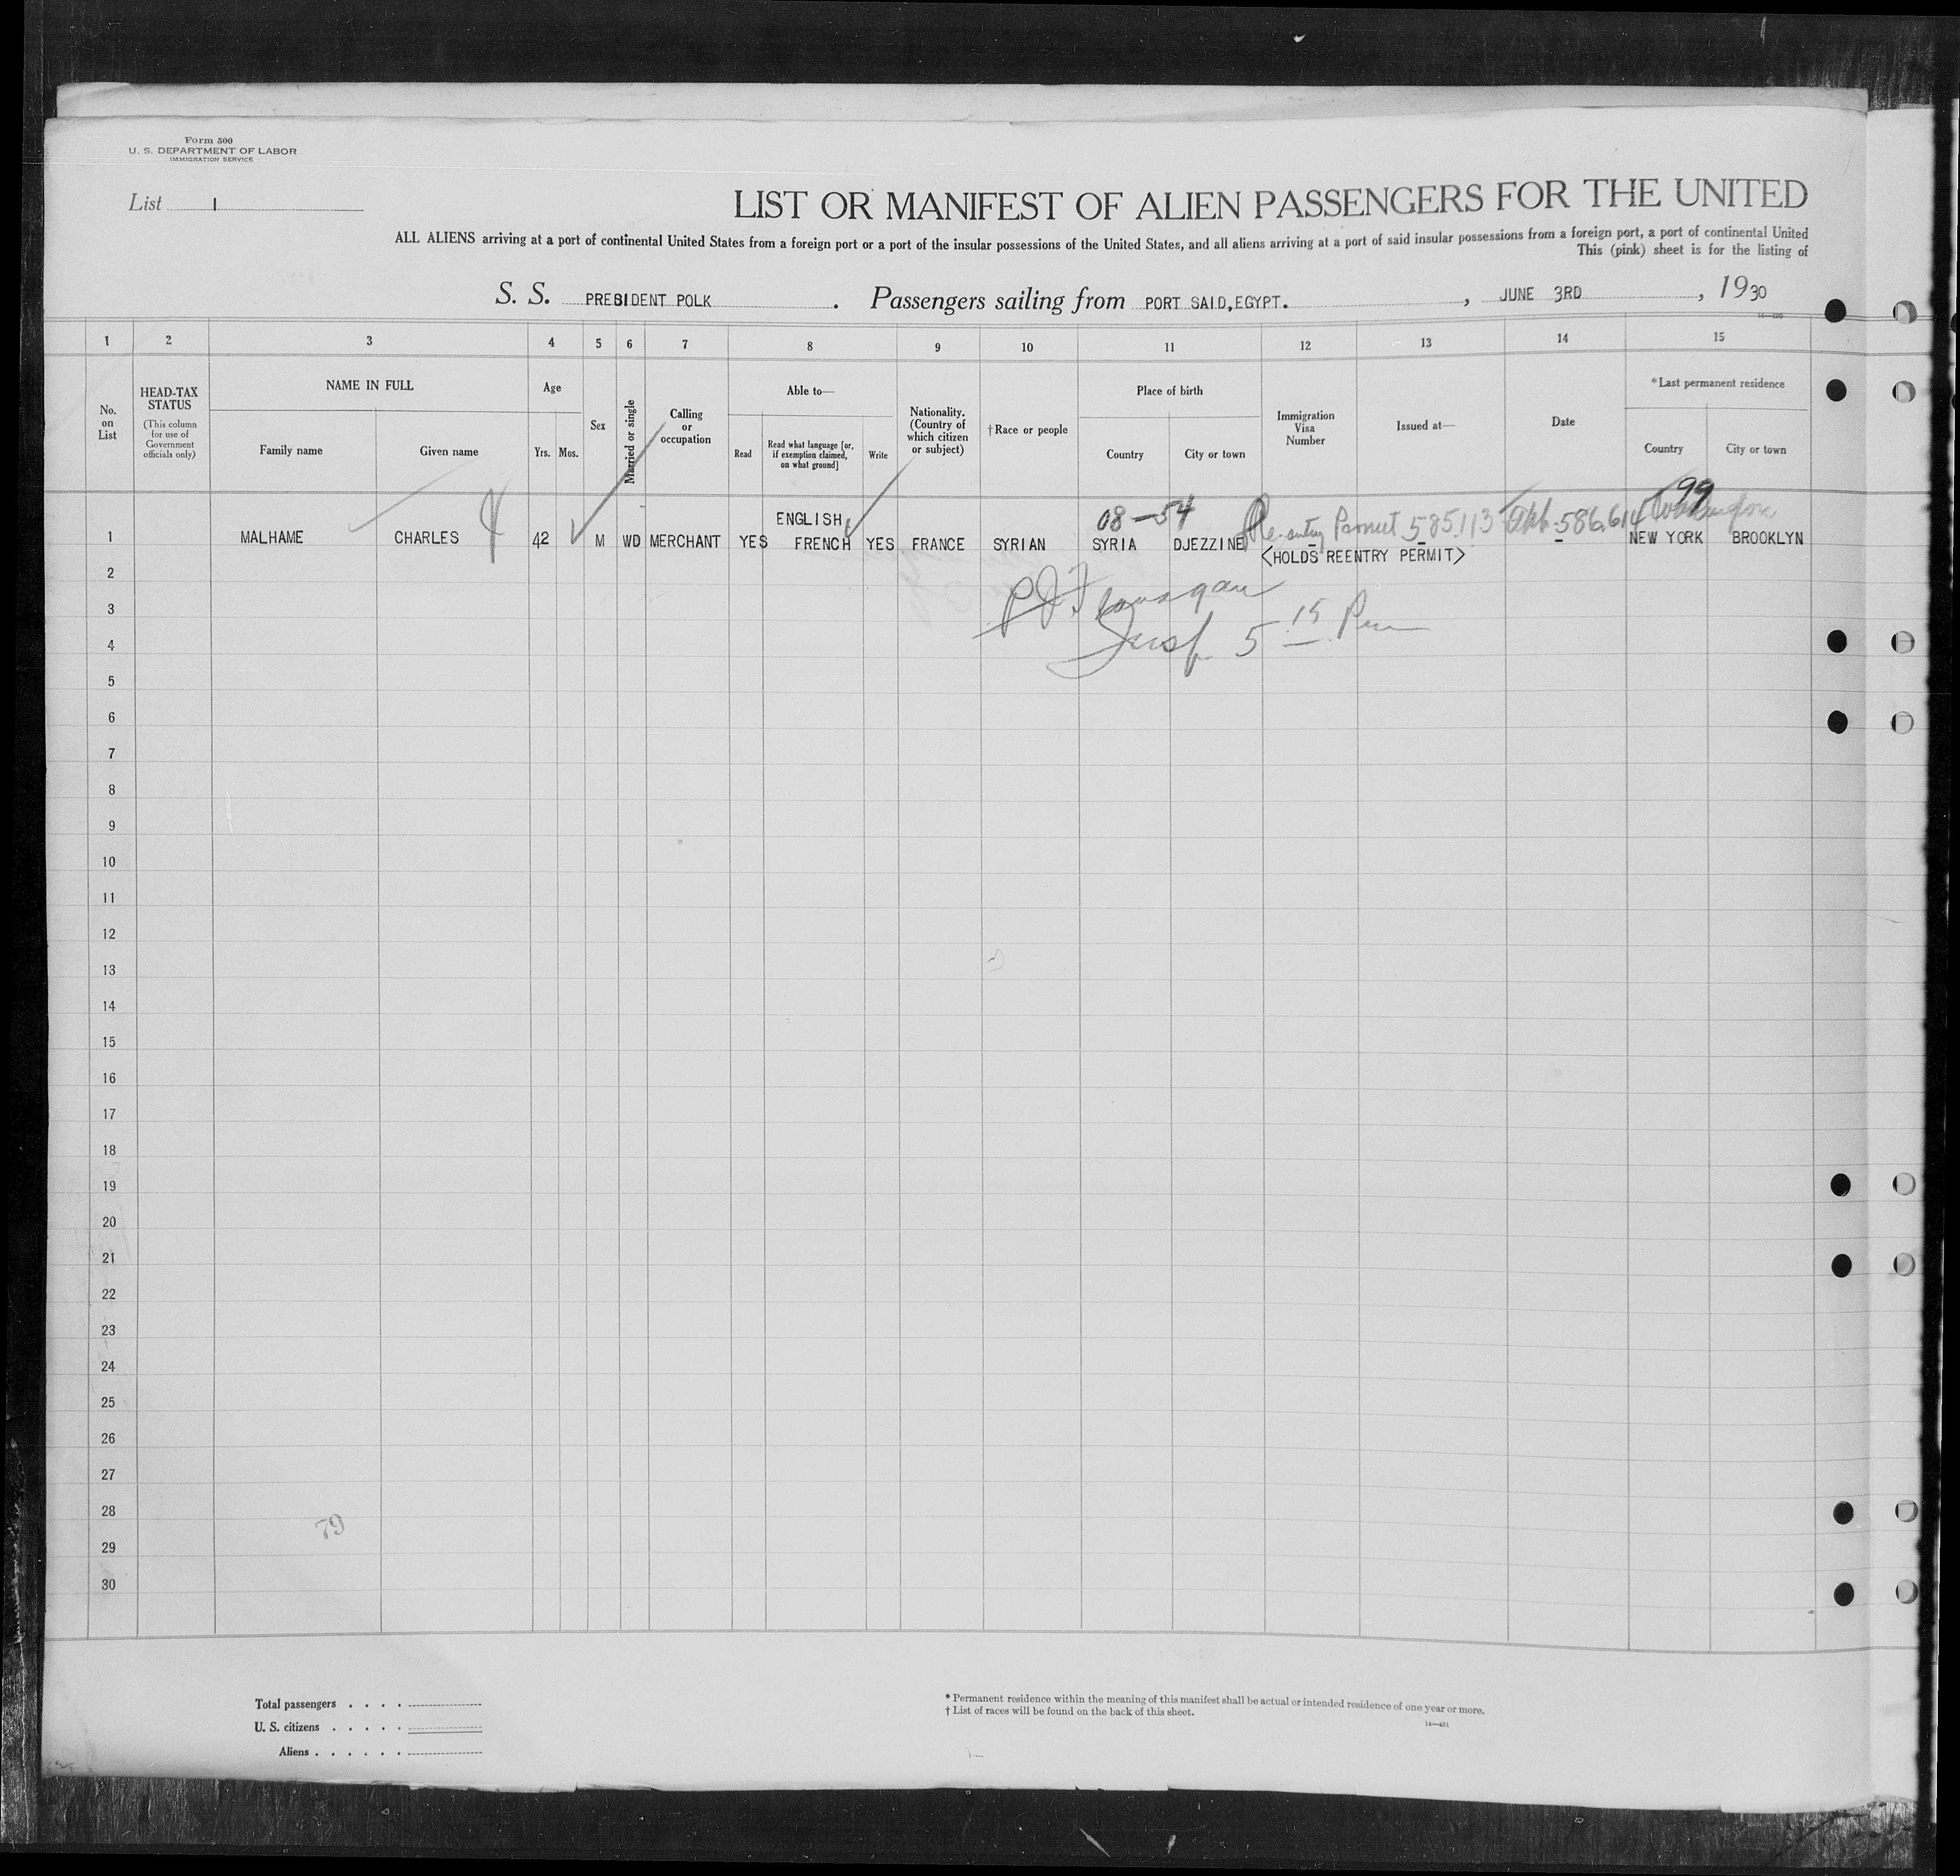 Form 500
U. S. DEPARTMENT OF LABOR
IMMIGRATION SERVICE
List 1
LIST OR MANIFEST OF ALIEN PASSENGERS FOR THE UNITED
ALL ALIENS arriving at a port of continental United States from a foreign port or a port of the insular possessions of the United States, and all aliens arriving at a port of said insular possessions from a foreign port, a port of continental United
This (pink) sheet is for the listing of
S. S. PRESIDENT POLK. Passengers sailing from PORT SAID, EGYPT. , JUNE 3RD , 1930
1 2 3 4 5 6 7 8 9 10 11 12 13 14 15
No. on List
HEAD-TAX STATUS
(This column for use of Government officials only)
NAME IN FULL
Family name
Given name
Age
Yrs.
Mos.
Sex
Married or single
Calling or occupation
Able to—
Read
Read what language [or, if exemption claimed, on what ground]
Write
Nationality. (Country of which citizen or subject)
†Race or people
Place of birth
Country
City or town
Immigration Visa Number
Issued at—
Date
*Last permanent residence
Country
City or town
08—54 Re-entry Permit 585113 586,614 Washington 99
ENGLISH
1 MALHAME CHARLES 42 M WD MERCHANT YES FRENCH YES FRANCE SYRIAN SYRIA DJEZZINE - - - NEW YORK BROOKLYN
<HOLDS REENTRY PERMIT>
2
3
Insp 5 15 Pm
4
5
6
7
8
9
10
11
12
13
14
15
16
17
18
19
20
21
22
23
24
25
26
27
28
79
29
30
Total passengers . . . .
U. S. citizens . . . . .
Aliens . . . . . .
* Permanent residence within the meaning of this manifest shall be actual or intended residence of one year or more.
† List of races will be found on the back of this sheet.